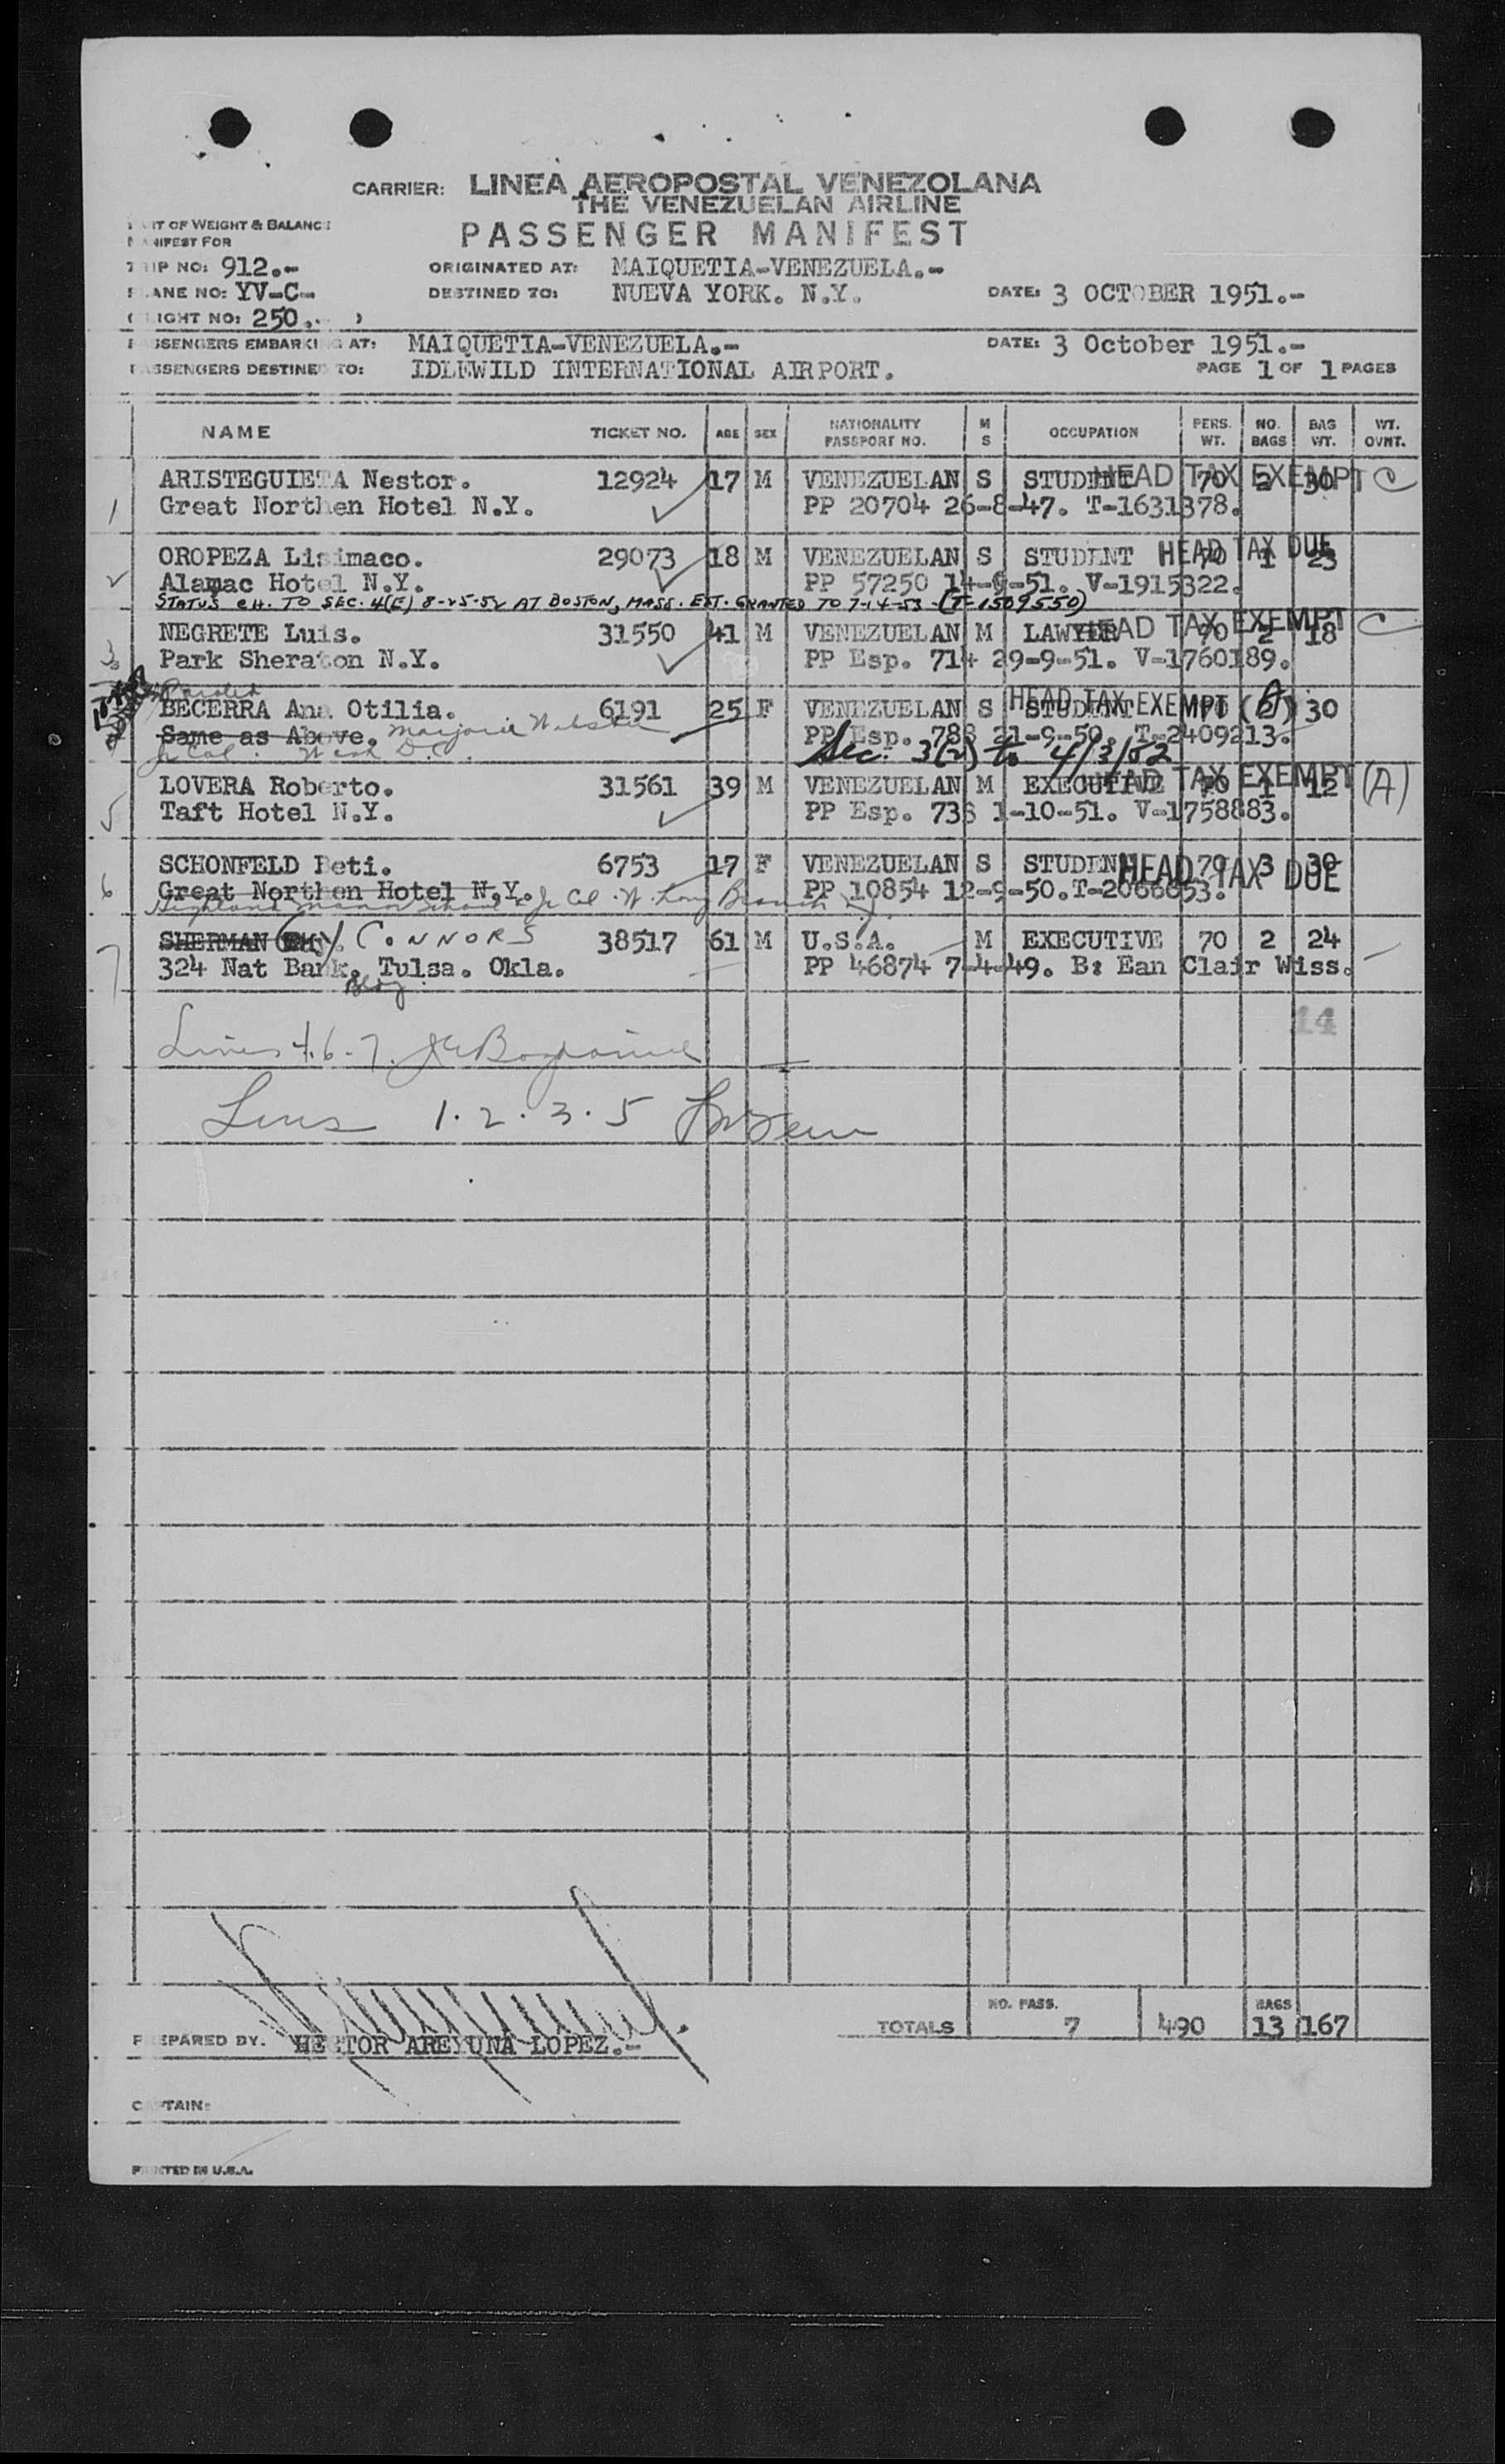 CARRIER: LINEA AEROPOSTAL VENEZOLANA
THE VENEZUELAN AIRLINE
PASSENGER MANIFEST
OF WEIGHT & BALANCE
MANIFEST FOR
TRIP NO: 912.-
ORIGINATED AT: MAIQUETIA-VENEZUELA.-
PLANE NO: YV-C-
DESTINED TO: NUEVA YORK. N.Y.
DATE: 3 OCTOBER 1951.-
(FLIGHT NO: 250.- )
PASSENGERS EMBARKING AT: MAIQUETIA-VENEZUELA.-
DATE: 3 October 1951.-
PASSENGERS DESTINED TO: IDLEWILD INTERNATIONAL AIRPORT.
PAGE 1 OF 1 PAGES
NAME TICKET NO. AGE SEX NATIONALITY PASSPORT NO. M S OCCUPATION PERS. WT. NO. BAGS BAG WT. WT. OVNT.
ARISTEGUIETA Nestor. 12924 17 M VENEZUELAN S STUDENT 70 2 30 HEAD TAX EXEMPT C
1 Great Northen Hotel N.Y. PP 20704 26-8-47. T-1631378.
OROPEZA Lisimaco. 29073 18 M VENEZUELAN S STUDENT 70 1 23 HEAD TAX DUE
2 Alamac Hotel N.Y. PP 57250 14-9-51. V-1915322.
STATUS CH. TO SEC. 4(E) 8-25-52 AT BOSTON, MASS. EXT. GRANTED TO 7-14-53 (T-1509550)
NEGRETE Luis. 31550 41 M VENEZUELAN M LAWYER 70 2 18 HEAD TAX EXEMPT C
3 Park Sheraton N.Y. PP Esp. 714 29-9-51. V-1760189.
Paroled
BECERRA Ana Otilia. 6191 25 F VENEZUELAN S STUDENT 70 2 30 HEAD TAX EXEMPT (A)
Same as Above. Marjorie Webster PP Esp. 788 21-9-50. T-2409213.
Jr Col. Wash D.C. Sec. 3(2) to 4/3/52
LOVERA Roberto. 31561 39 M VENEZUELAN M EXECUTIVE 70 1 12 HEAD TAX EXEMPT (A)
5 Taft Hotel N.Y. PP Esp. 736 1-10-51. V-1758883.
SCHONFELD Beti. 6753 17 F VENEZUELAN S STUDENT 70 3 30 HEAD TAX DUE
6 Great Northen Hotel N.Y. PP 10854 12-9-50. T-2066853.
Highland Manor School & Jr Col. W. Long Branch N.J.
SHERMAN CONNORS 38517 61 M U.S.A. M EXECUTIVE 70 2 24
7 324 Nat Bank. Tulsa. Okla. PP 46874 7-4-49. B: Ean Clair Wiss.
Bldg
14
Lines 4.6-7.
Lines 1.2.3.5
NO. PASS. BAGS
TOTALS 7 490 13 167
PREPARED BY. HECTOR AREYUNA LOPEZ.-
CAPTAIN:
PRINTED IN U.S.A.